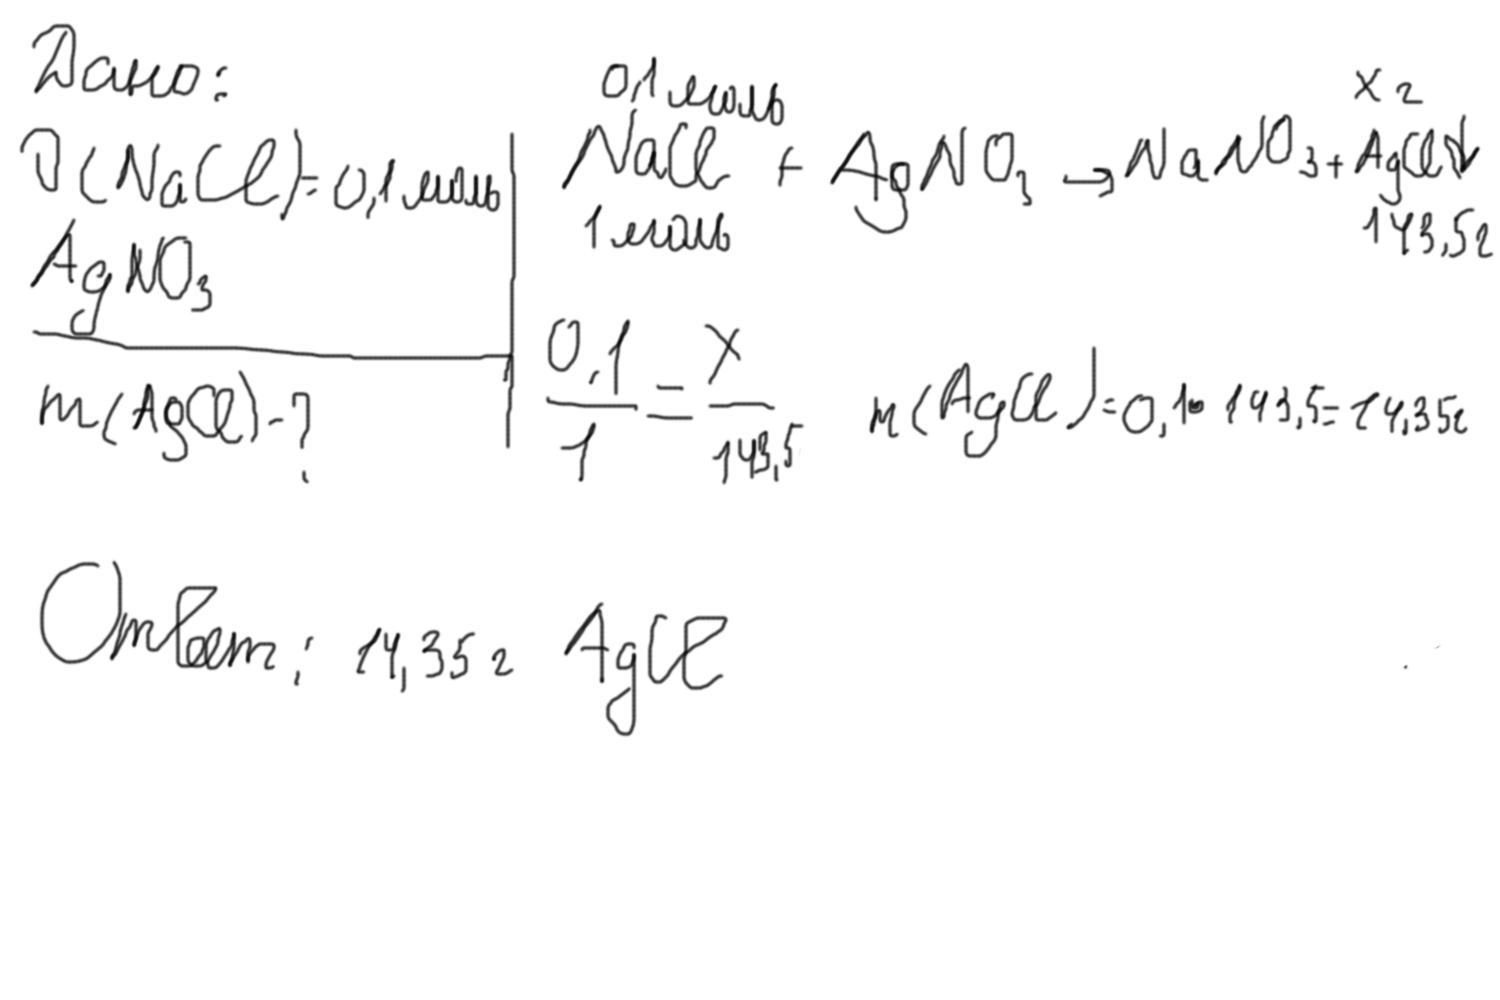 Дано:
υ(NaCl)=0,1моль
AgNO3
m(AgCl)-?
0,1моль
x г
NaCl + AgNO3 → NaNO3 + AgCl↓
1моль
143,5г
0,1/1 = x/143,5
m(AgCl)=0,1•143,5=14,35г
Ответ: 14,35 г AgCl